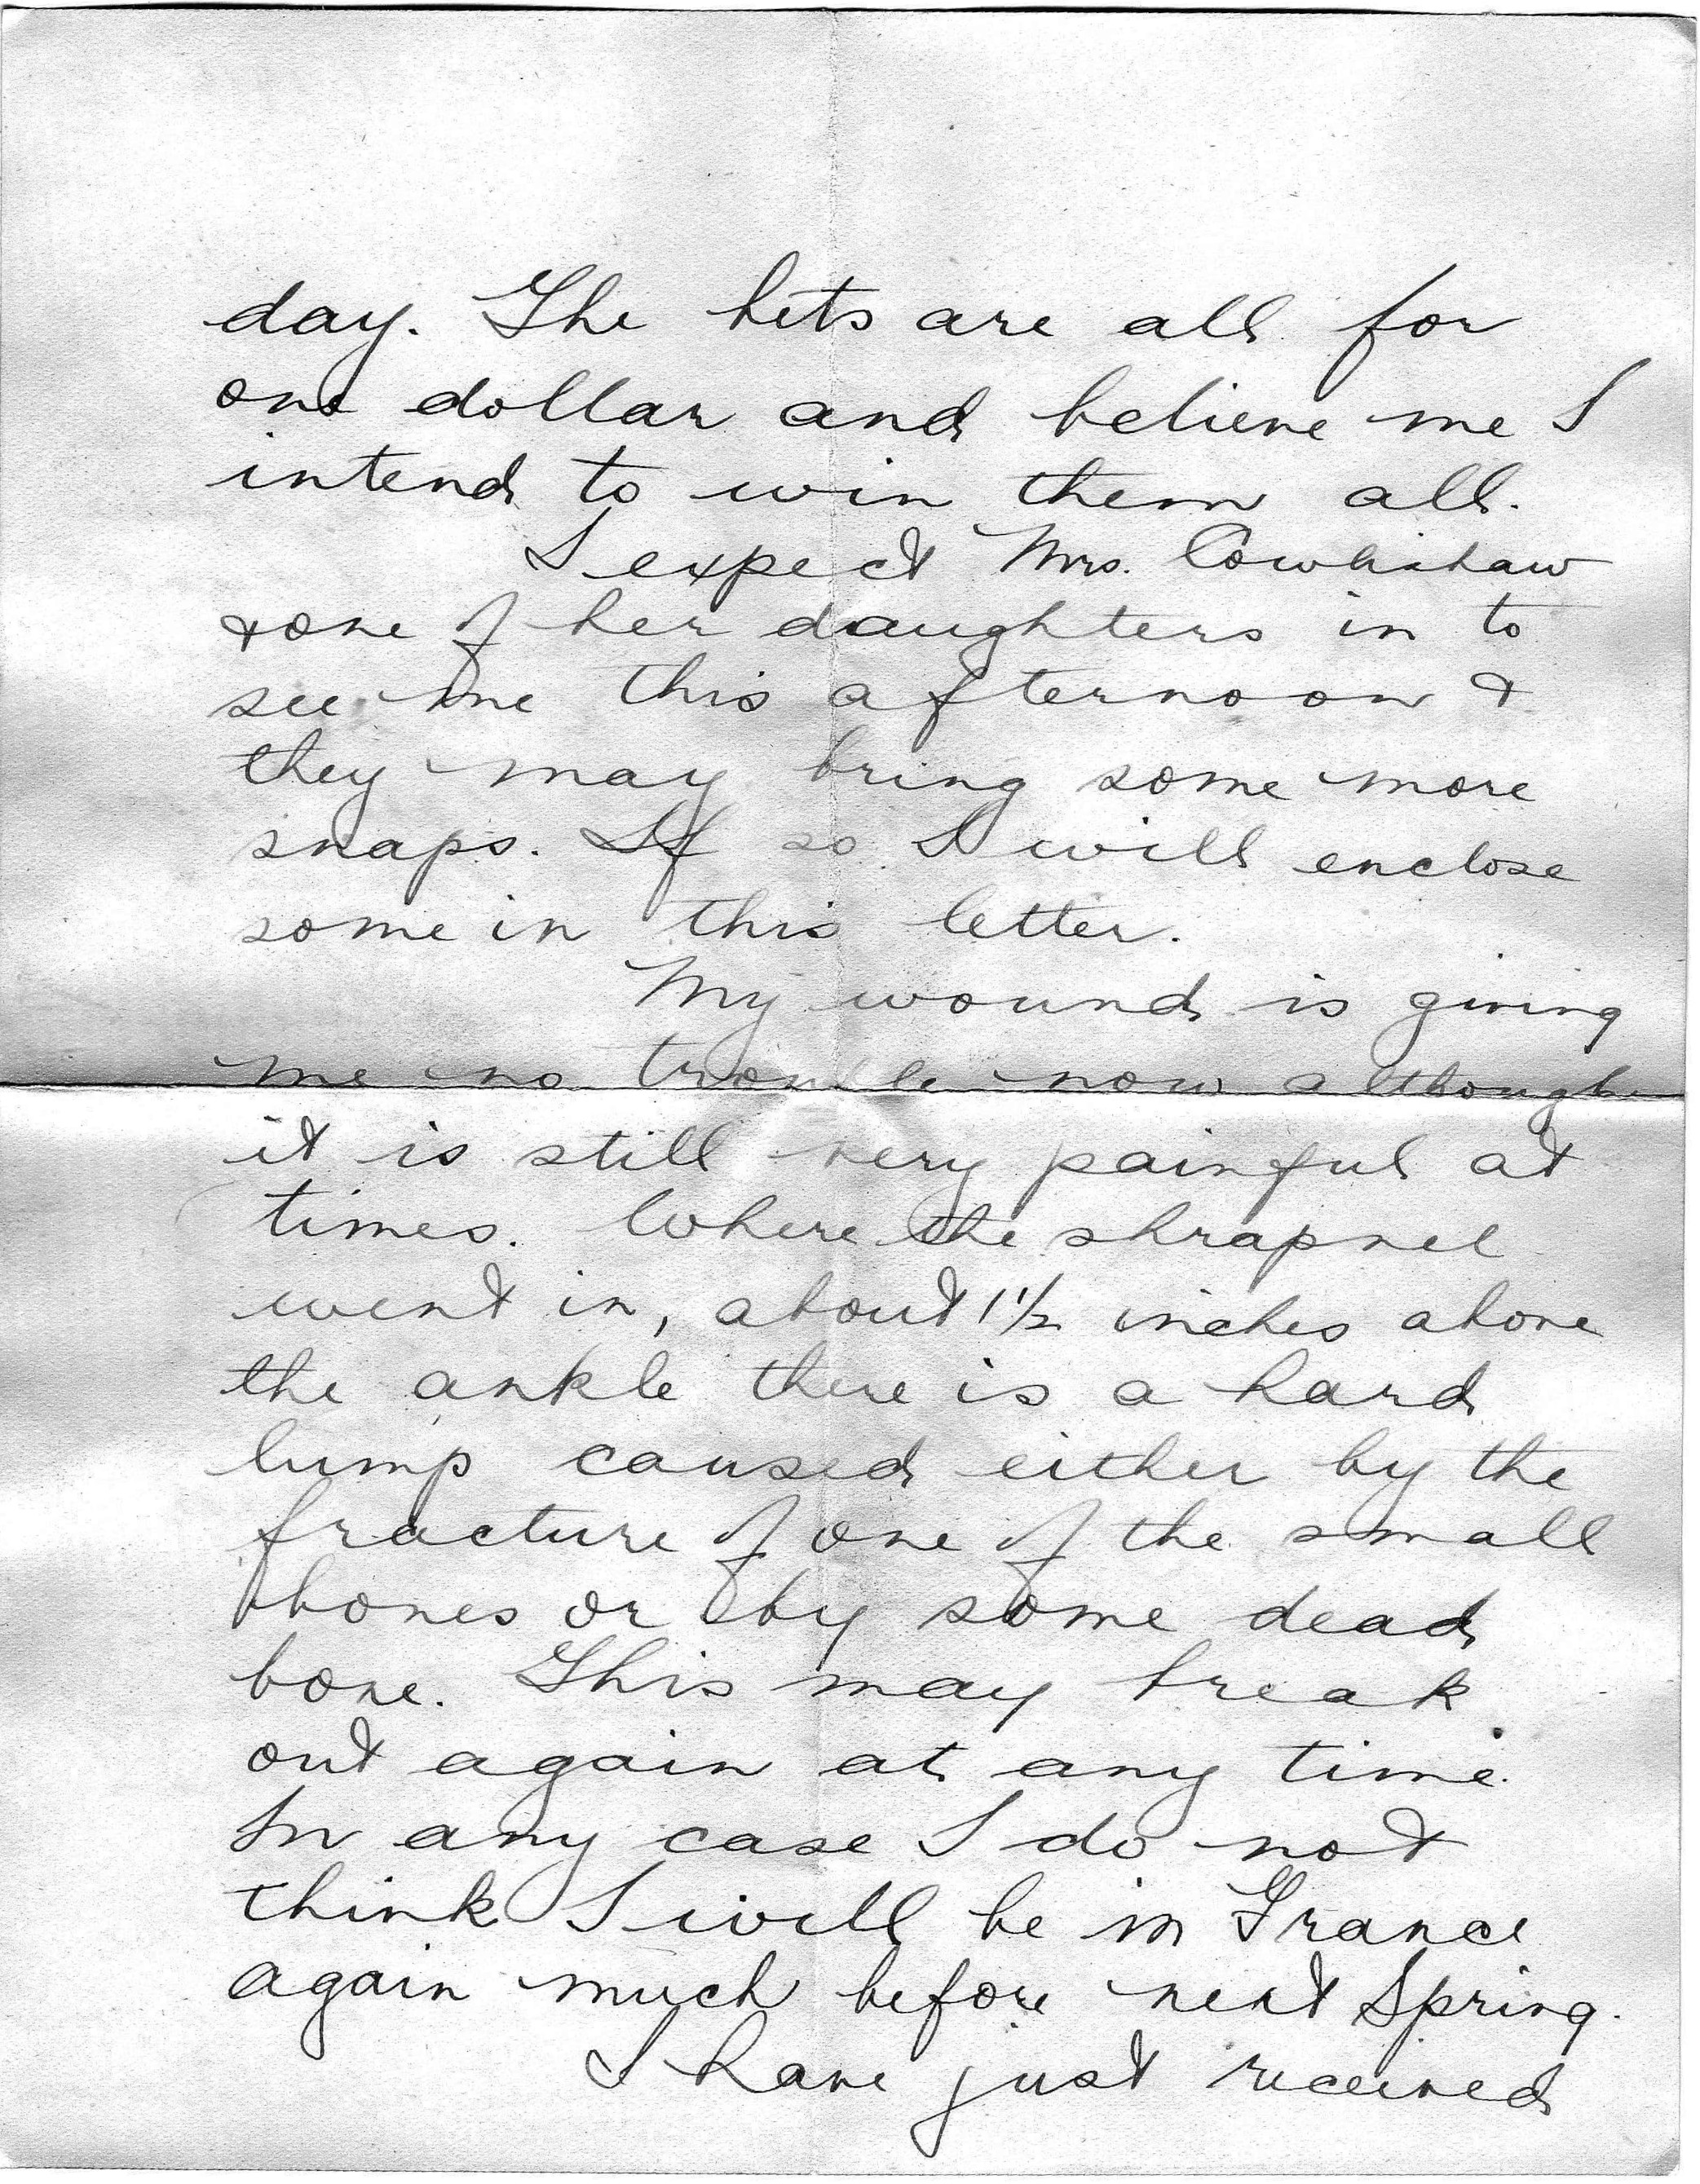 day. The bets are all for
one dollar and believe me I
intend to win them all.
I expect Mrs. Cowlishaw
& one of her daughters in to
see me this afternoon &
they may bring some more
snaps. If so I will enclose
some in this letter.
My wound is giving
me no trouble now although
it is still very painful at
times. Where the shrapnel
went in, about 1½ inches above
the ankle there is a hard
lump caused either by the
fracture of one of the small
bones or by some dead
bone. This may break
out again at any time.
In any case I do not
think I will be in France
again much before next Spring.
I have just received